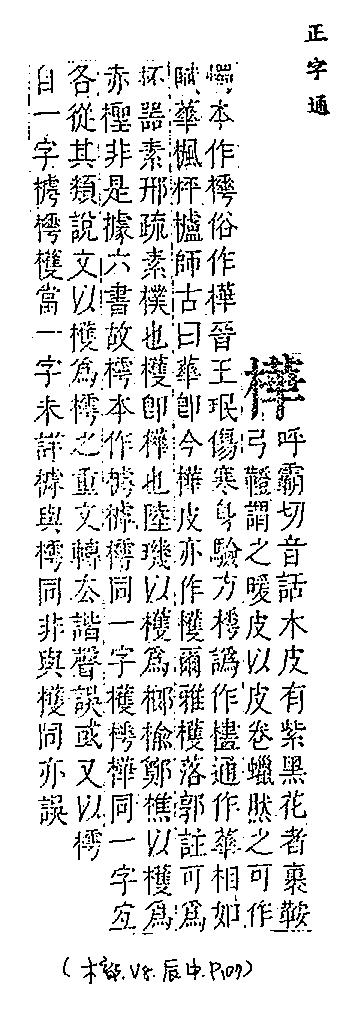 正字通
樺
呼霸切音話木皮有紫黑花者裹鞍
弓鞾謂之暖皮以皮卷蠟肰之可作
燭本作樗俗作樺晉王珉傷寒身驗方樗譌作櫨通作華相如
賦華楓枰櫨師古曰華卽今樺皮亦作檴爾雅檴落郭註可爲
杯器素邢疏素樸也檴卽樺也陸璣以檴爲榔榆鄭樵以檴爲
赤檉非是據六書故樗本作㯉樗同一字檴樗樺同一字宐
各從其類說文以檴爲樗之重文轉去諧聲誤或又以樗
自一字㯉樗檴當一字未詳㯉與樗同非與檴同亦誤
(木部.V8.辰中.P109)